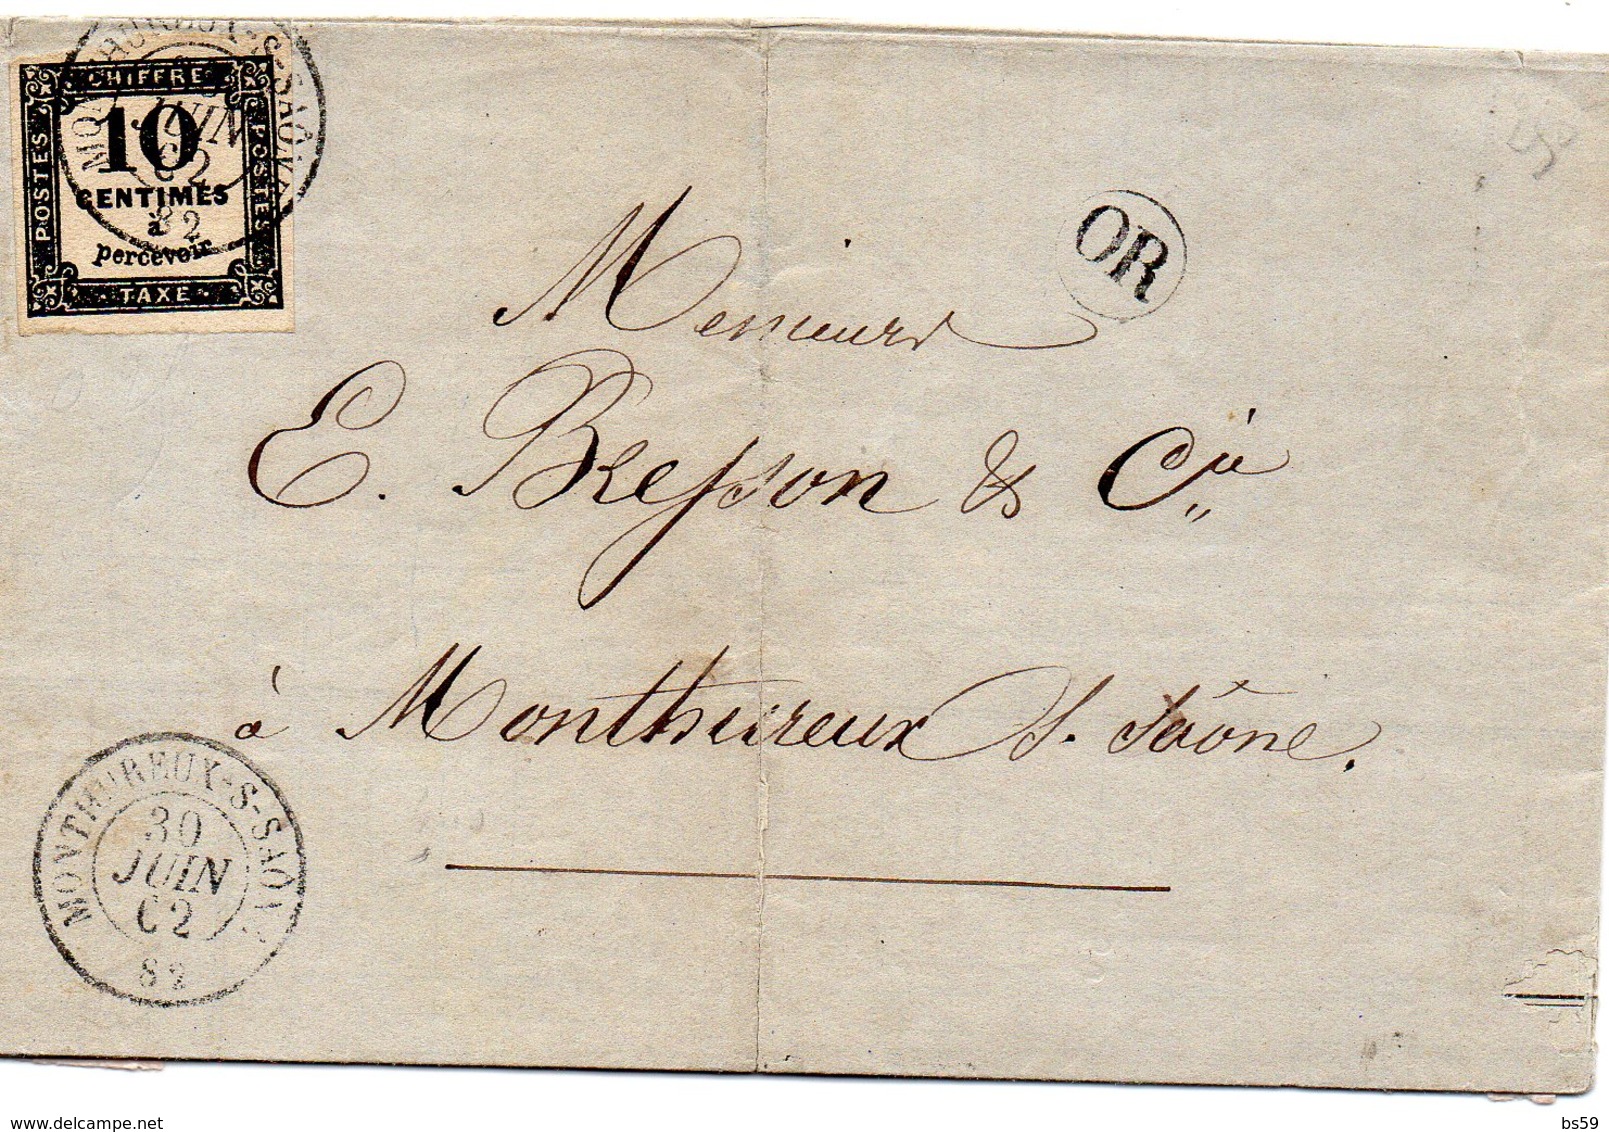 CHIFFRE
POSTES
10
CENTIMES
à
percevoir
POSTES
TAXE
JUIN
62
82
OR
Messieurs
E. Bresson & Cie
à Monthureux s. Saône.
MONTHUREUX-S-SAÔNE
30
JUIN
62
82
www.delcampe.net
bs59